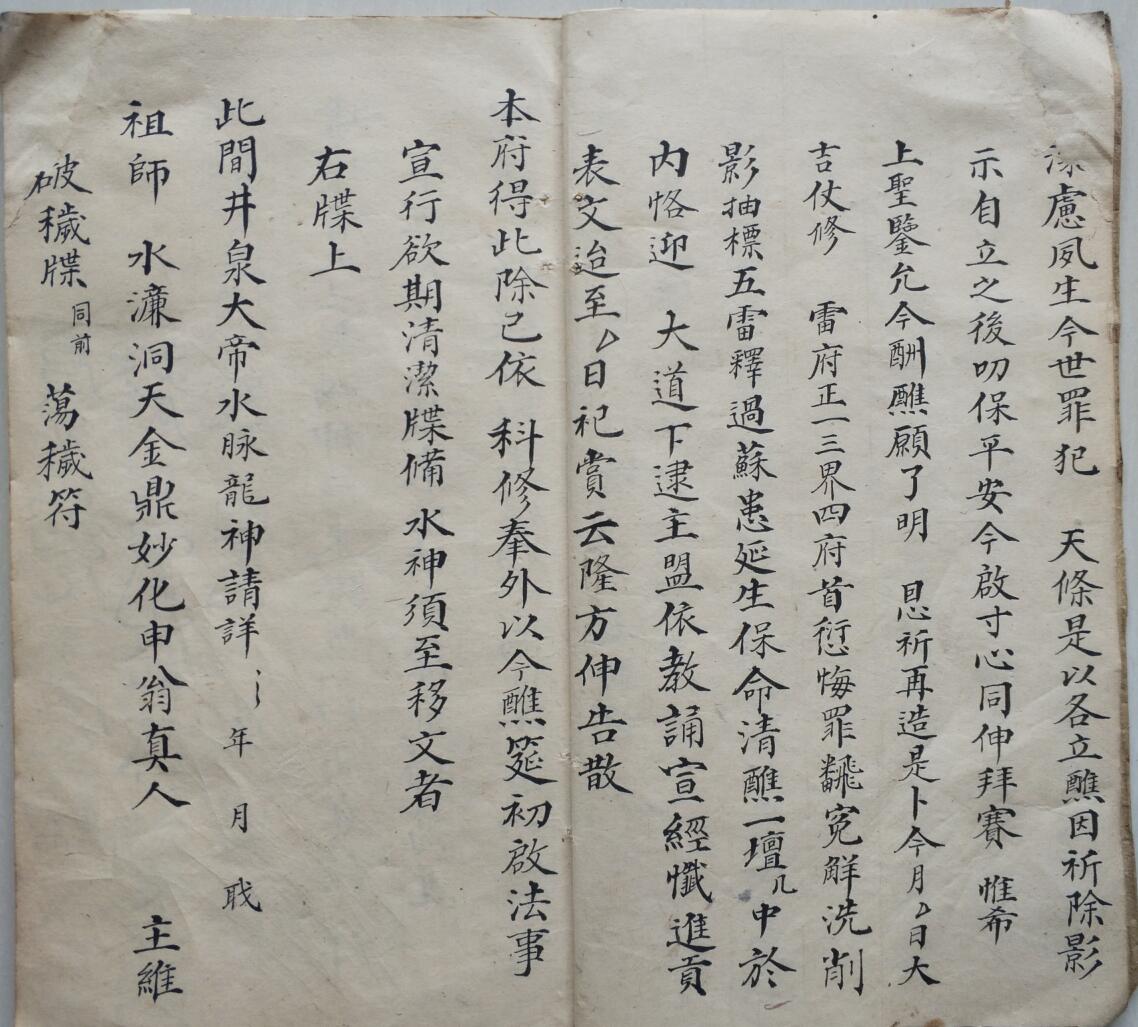 慮夙生今世罪犯　天條是以各立醮因祈除影
示自立之後叨保平安今啟寸心同伸拜賽　惟希
上聖鑒允今酬醮願了明　恩祈再造是卜今月厶日大
吉仗修　雷府正一三界四府首愆悔罪飜冤解洗削
影抽標五雷釋過蘇患延生保命清醮一壇几中於
内恪迎　大道下逮主盟依教誦宣經懺進貢
表文迨至厶日祀賞云隆方伸告散
本府得此除已依　科修奉外以今醮筵初啟法事
宣行欲期清潔牒備　水神須至移文者
右牒上
此間井泉大帝水脉龍神請詳〻　年　月　戝
祖師　水濂洞天金鼎妙化申翁真人　主維
破穢牒同前　蕩穢符